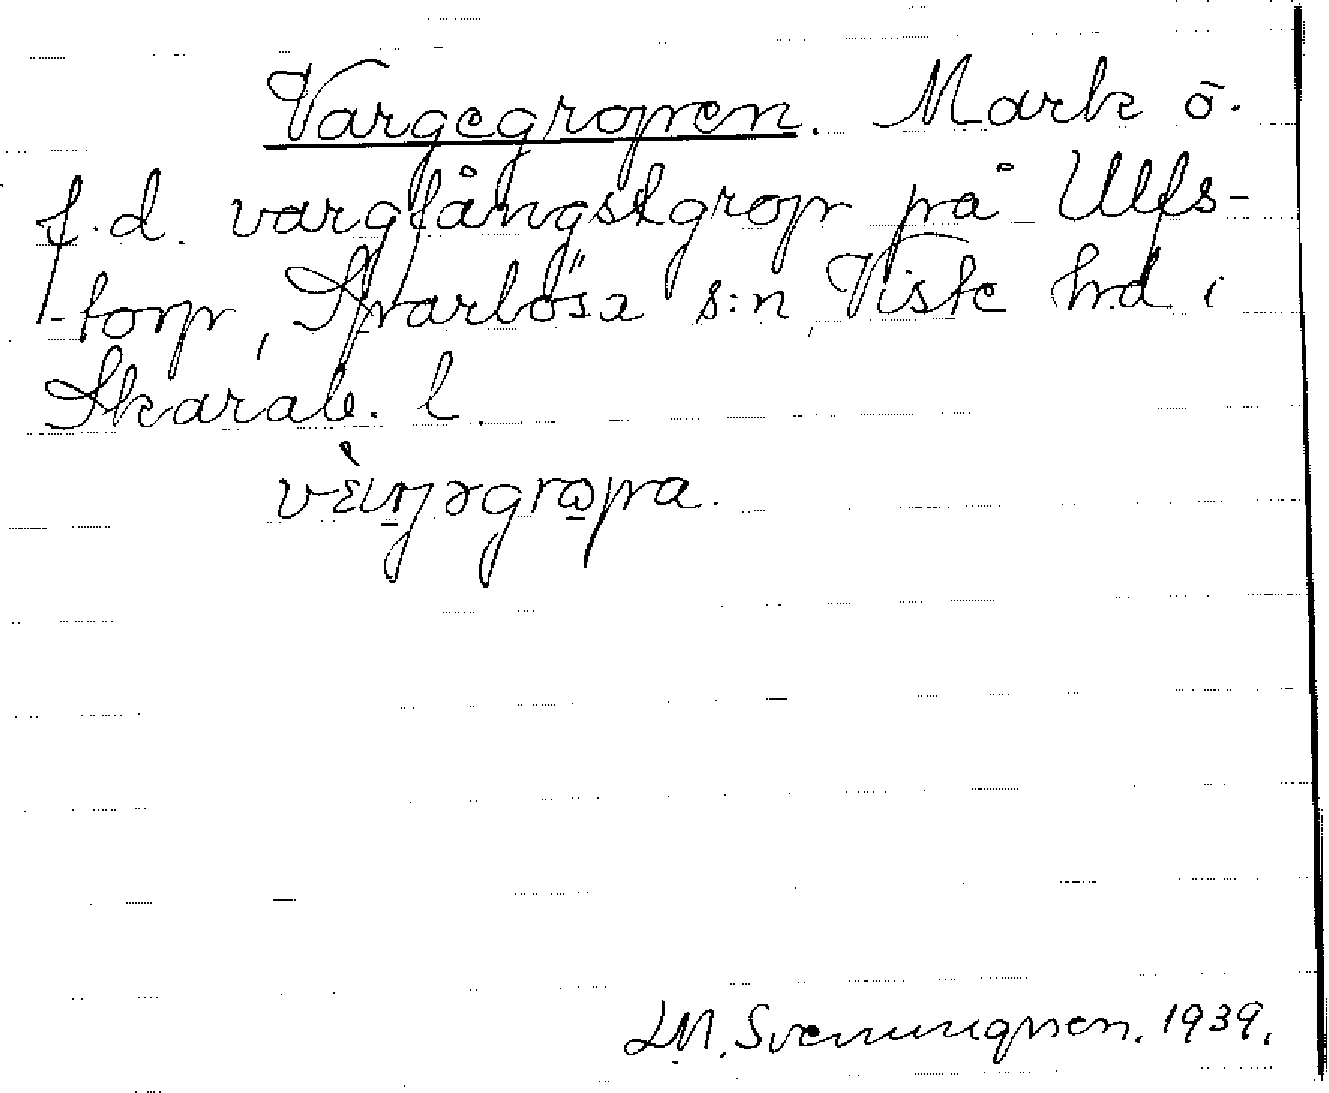 Vargegropen. Mark ö.
f.d. vargfångstgrop på Ulfs-
-torp, Sparlösa s:n, Viste hd i
Skarab. l.
L.M. Svenungsson. 1939.